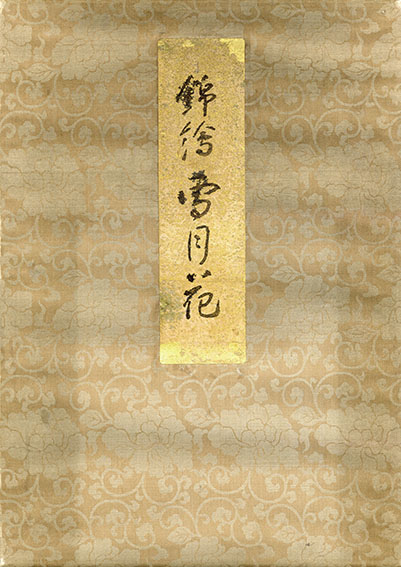 錦繪雪月花